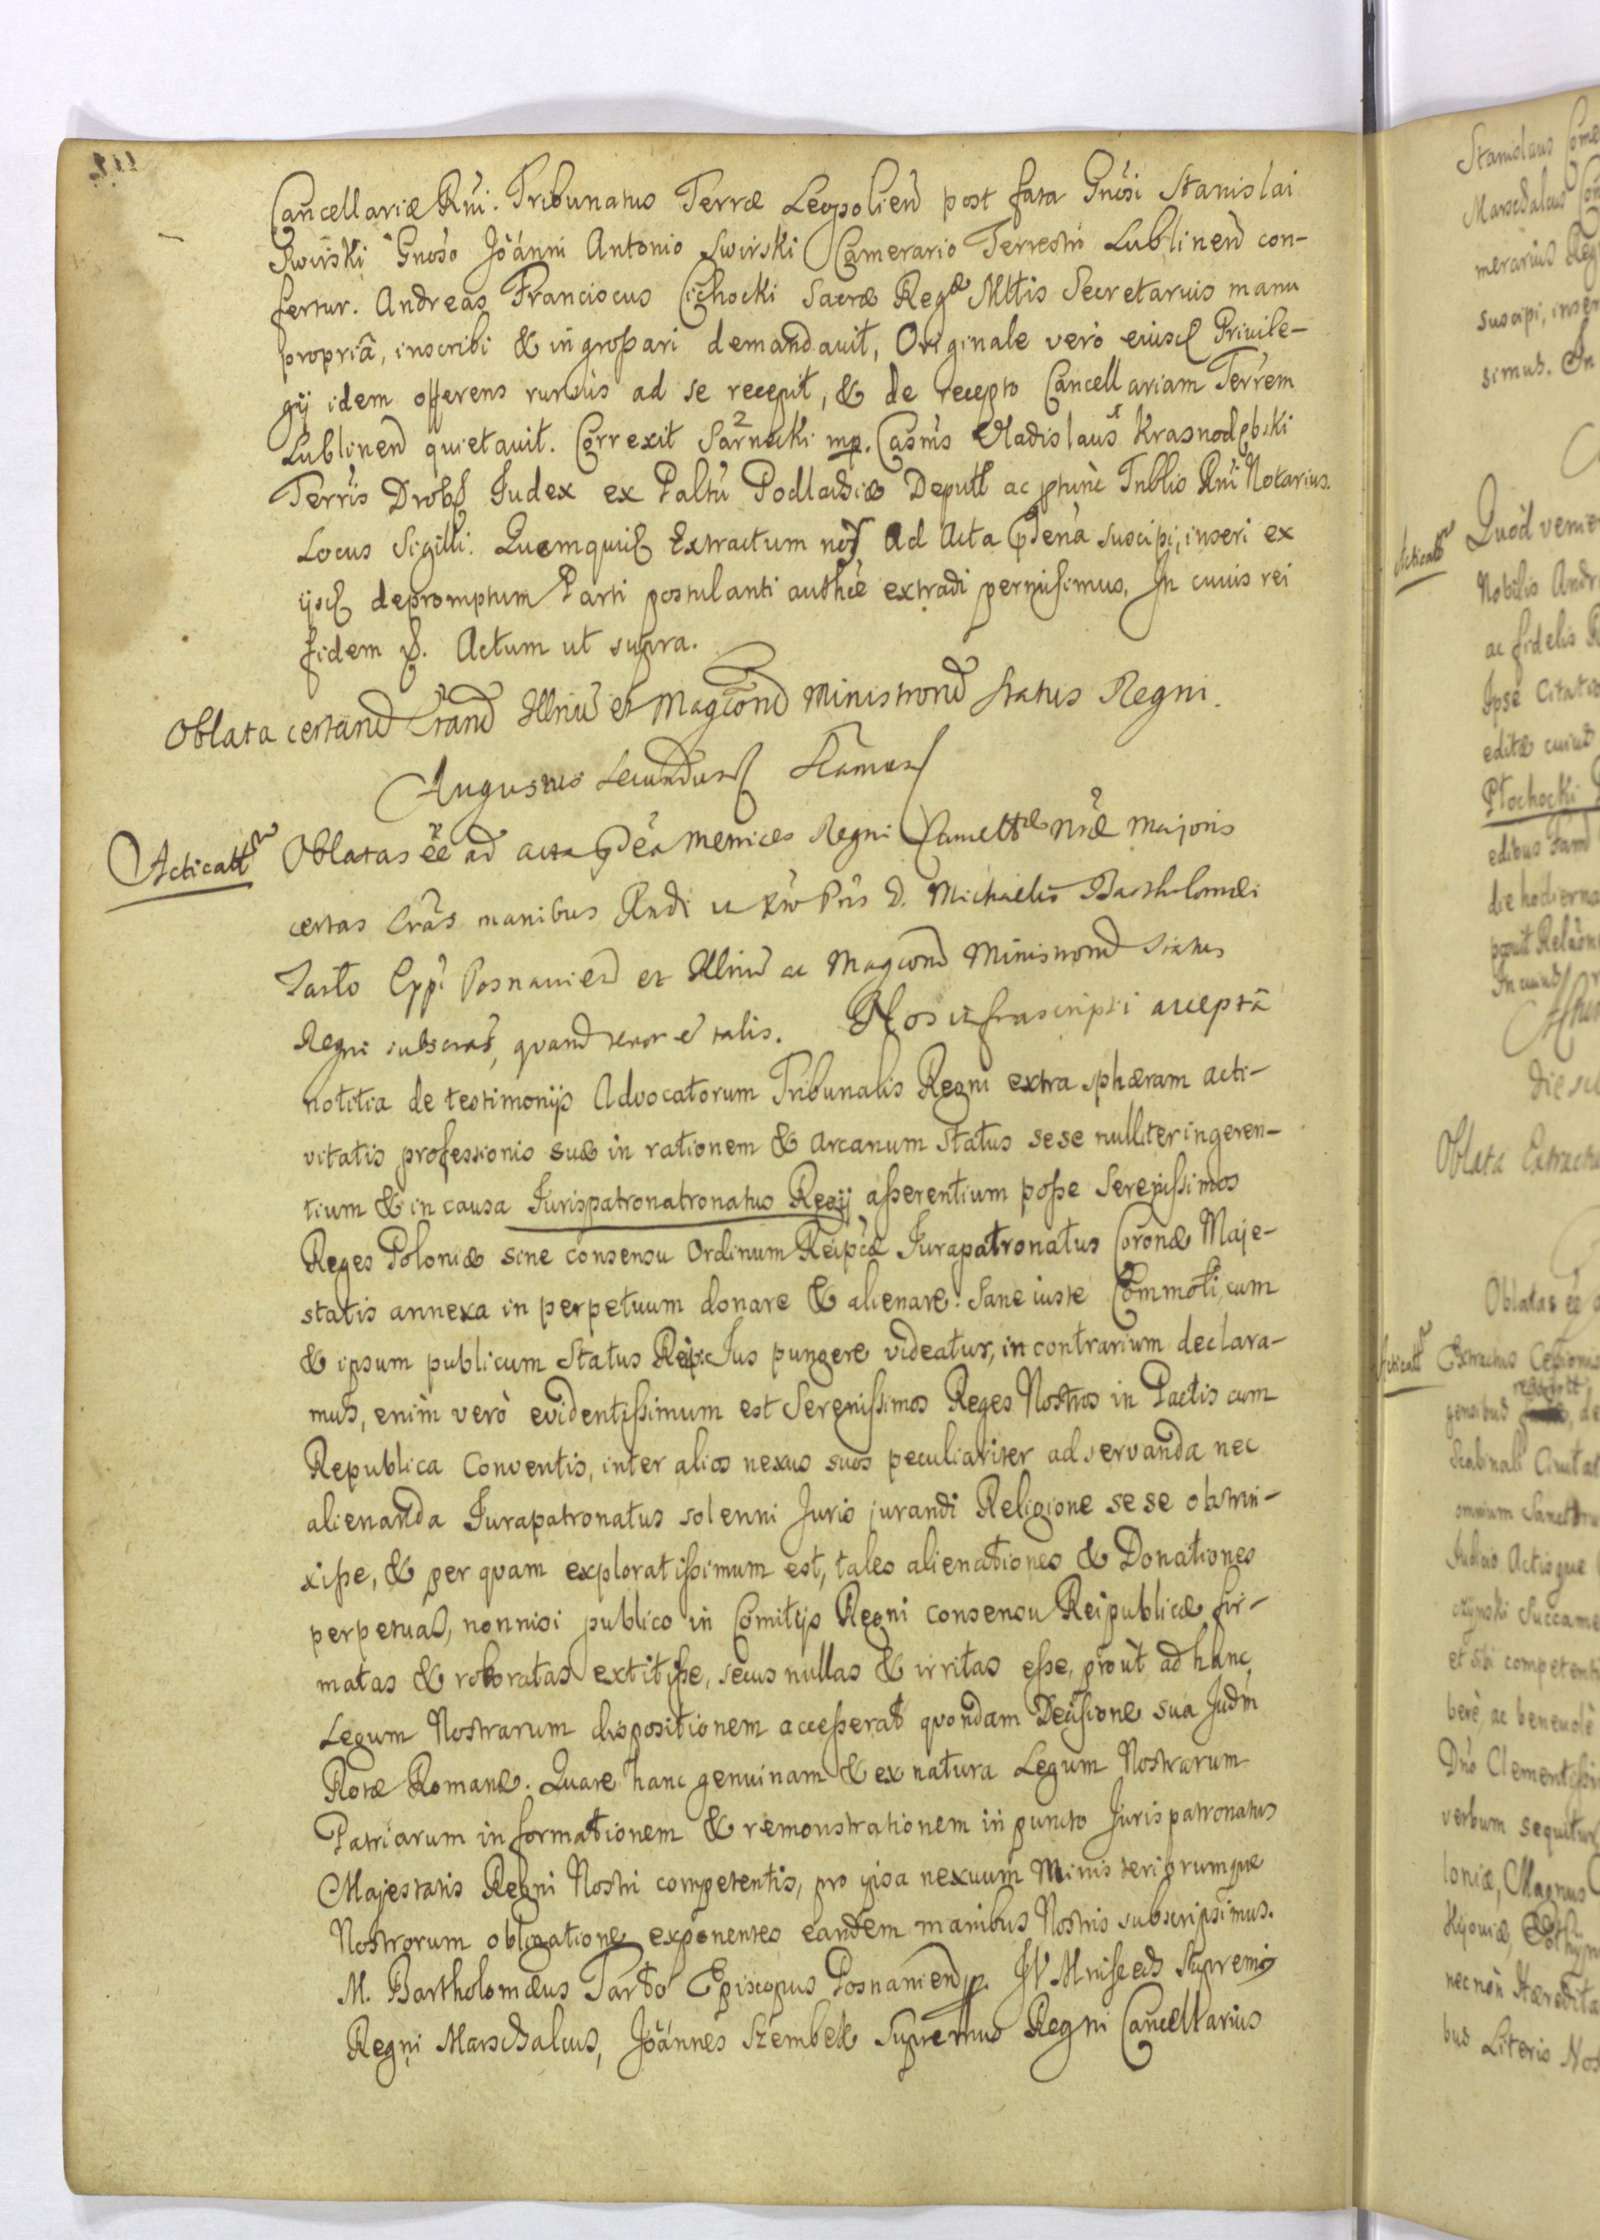 Cancellariæ Rñi. Tribunatus Terræ Leopolien post fata Gñosi Stanislai
Swirski Gnoso Joánni Antonio Swirski Camerario Terrestri Lublinen con-
fertur. Andreas Franciscus Cichocki Sacræ Regæ Mttis Secretarius manu
propriâ, inscribi & ingrossari demandavit, Originale verò eiusd Privile-
gij idem offerens rursùs ad se recepit, & de recepto Cancellariam Terrem
Lublinen quietavit. Correxit Sarnecki mp. Casm̃s Vladislaus Krasnodębski
Terr̃is Droh Judex ex Paltu Podlachiæ Deputt ac ptunc Tnblis Rñi Notarius.
Locus Sigilli. Quemquid Extractum nos Ad Acta pñena suscipi, inseri ex
ijsd depromptum Parti postulanti authcè extradi permisimus, In cuius rei
fidem p. Actum ut supra.
Oblata certand Lrand Illriu et Magcond Ministrond Status Regni.
Augustus Secundus
Acticatt
Oblatas eê ad acta pñea Metrices Regni Cancellæ Nræ Majoris
certas Lrãs manibus Rndi Xto Pris D. Michaelis Bartholomæi
Tarło Eppi Posnanien et Illriu ac Magcond Ministrond Status
Regni subscrat, quand tenor e talis. Nos infrascripti acceptâ
notitia de testimonijs Advocatorum Tribunalis Regni extra sphæram acti-
vitatis professionis suæ in rationem & arcanum Status sese nulliter ingeren-
tium & in causa Jurispatronatronatus Regij asserentium posse Serenissimos
Reges Poloniæ sine consensu Ordinum Reipcæ Jurapatronatus Coronæ Maje-
statis annexa in perpetuum donare & alienare. Sane iuste Commoti, cum
& ipsum publicum Status Reipc Jus pungere videatur, in contrarium declara-
mus, enim verò evidentissimum est Serenissimos Reges Nostros in Pactis cum
Republica Conventis, inter alios nexus suos peculiariter ad servanda nec
alienanda Jurapatronatus solenni Juris jurandi Religione sese obstrin-
xisse, & per quam exploratissimum est, tales alienationes & Donationes
perpetuas, nonnisi publico in Comitijs Regni consensu Reipublicæ fir-
matas & roboratas extitisse, secus nullas & irritas esse, proùt ad hanc
Legum Nostrarum dispositionem accesserat quondam Decisione sua Judm
Rotæ Romanæ. Quare hanc genuinam & ex natura Legum Nostrarum
Patriarum informationem & remonstrationem in puncto Jurispatronatus
Majestatis Regni Nostri competentis, pro ipsa nexuum Ministeriorumque
Nostrorum obligatione exponentes eandem manibus Nostris subscripsimus.
M. Bartholomæus Tarło Episcopus Posnanien mp. JV Mniszech Supremus
Regni Marschalcus, Joánnes Szembek Supremus Regni Cancellarius
Acticatt
Quòd venie
Nobilis Andr
ac fidelis
Ipse Citatio
editæ cuius
Płochocki
edibus
die hodierna
In cuius
Oblata Extractu
Acticatt
Oblatas eê
Extractus
Scabinali Civitat
omnium Sanctoru
Judicio Actisque
et sibi competenti
berè, ac benevolè
Dño Clementissi
verbum sequitur
loniæ, Magnus
Kijoviæ,
necnòn Hæredita
bus Literis Nos